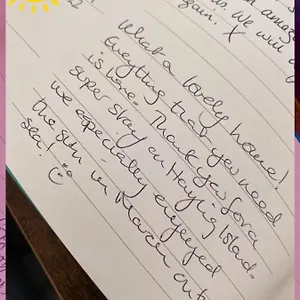 an amazin
us. We will c
gain. X
What a lovely home!
Everything that you need
is here. Thank you for a
super stay on Hayling Island.
We especially enjoyed
the sun in March on the
sea! ☺